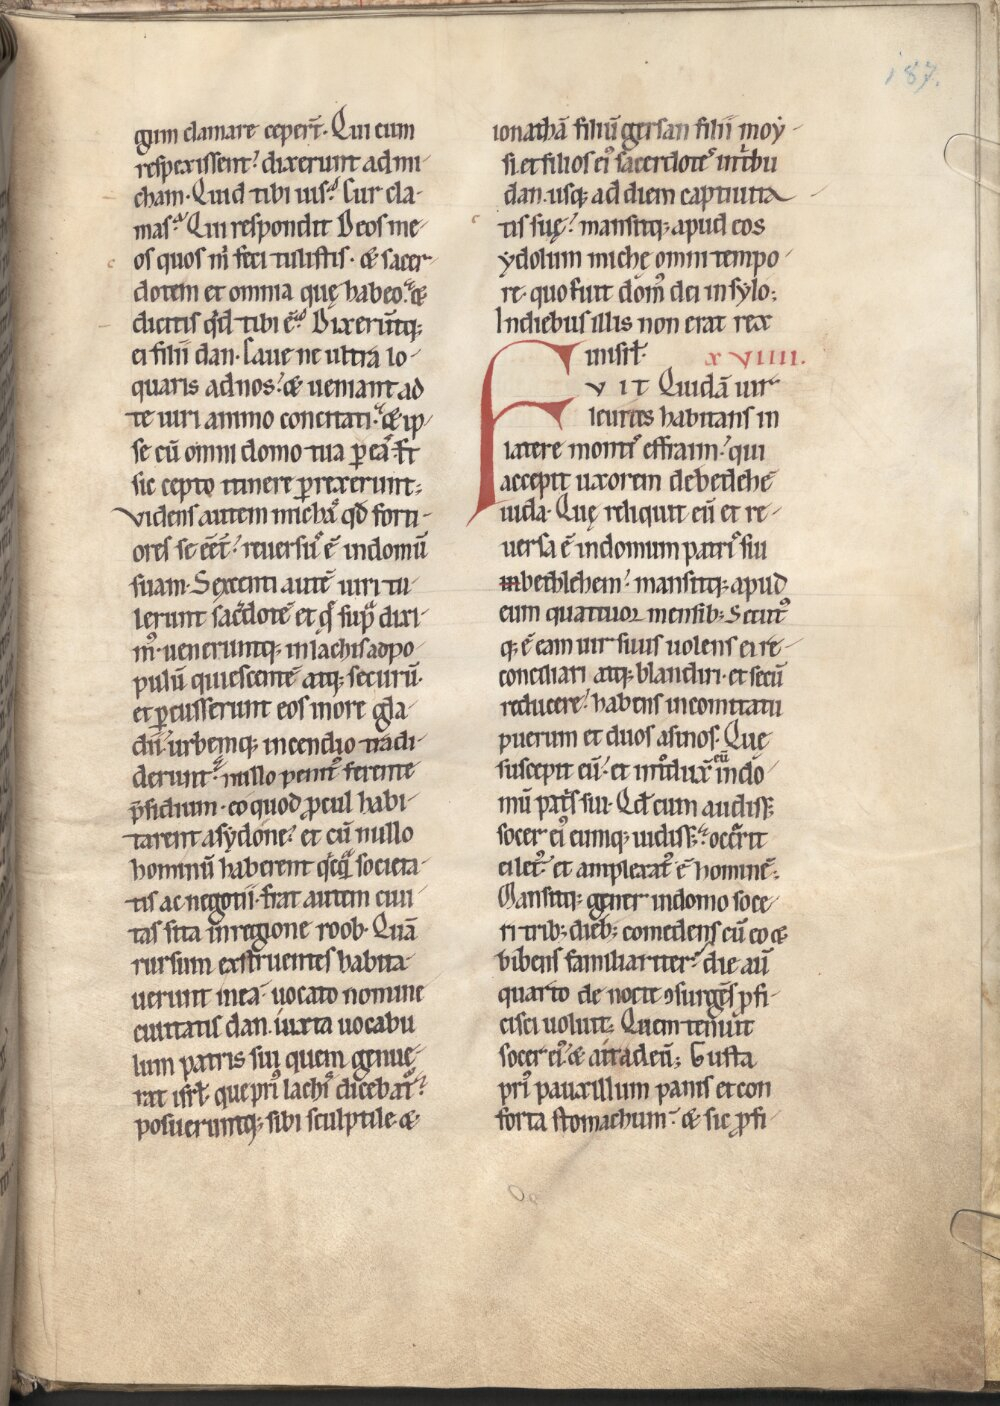 187.
gnm clamare ceper̄t. Qui cum
respexissent? dixerunt ad mi-
cham. Quid tibi uis? Cur cla-
mas? Qui respondit Deos me-
os quos m̊ feci tulistis. & sacer-
dotem et omnia quę habeo. &
dicitis qd̄ tibi ē? Dixerūtq;
ei filii dan. Caue ne ultra lo-
quaris ad nos? & ueniant ad
te uiri animo concitati. & ip-
se cū omni domo tua ꝑeas. Et
sic cepto itinere ꝑrexerunt;
Videns autem micha qd̄ forti-
ores se eēt? reuersus ē in domū
suam. Sexcenti autē uiri tu-
lerunt sacdotē et q̄ sup̄ dixi-
m⁹. ueneruntq; in lachis ad po-
pulū quiescentē atq; securū.
et ꝑcusserunt eos more gla-
dii. urbemq; incendio tradi-
derunt. nullo penit⁹ ferente
p̄sidium. eo quod ꝓcul habi-
tarent a sydone? et cū nullo
hominū haberent qcq̄ societa-
tis ac negotii. Erat autem ciui-
tas sita in regione roob. Quā
rursum exstruentes habita-
uerunt in ea. uocato nomine
ciuitatis dan. iuxta uocabu
lum patris sui quem genue-
rat isrl̄. que pri⁹ lachis dicebat̄?
posueruntq; sibi sculptile &
ionathā filiū gersan filii moy-
si et filios ei⁹ sacerdotes in tribu
dan. usq; ad diem captiuita
tis suę? mansitq; apud eos
ydolum michę omni tempo-
re. quo fuit dom⁹ dei in sylo;
In diebus illis non erat rex
in isrl̄. xviiii.
FVIT Quidā uir
leuites habitans in
latere montis effraim? qui
accepit uxorem de bethleē
iuda. Quę reliquit eū et re-
uersa ē in domum patris sui
in bethlehem? mansitq; apud
eum quattuor mensib; Secut⁹
q; ē eam uir suus uolens ei re-
conciliari atq; blandiri. et secū
reducere? habens in comitatu
puerum et duos asinos. Que
suscepit eū. et introdux̄ eū in do-
mū patris sui. Qd̄ cum audiss;
socer ei⁹ eumq; uidiss; occurrit
ei let⁹. et amplexat⁹ ē hominē;
Mansitq; gener in domo soce-
ri trib; dieb; comedens cū eo &
bibens familiariter? die aū
quarto de nocte ꝯsurgēs ꝓfi-
cisci uoluit; Quem tenuit
socer ei⁹ & ait ad eū; Gusta
pri⁹ pauxillum panis et con
forta stomachum? & sic ꝓfi-